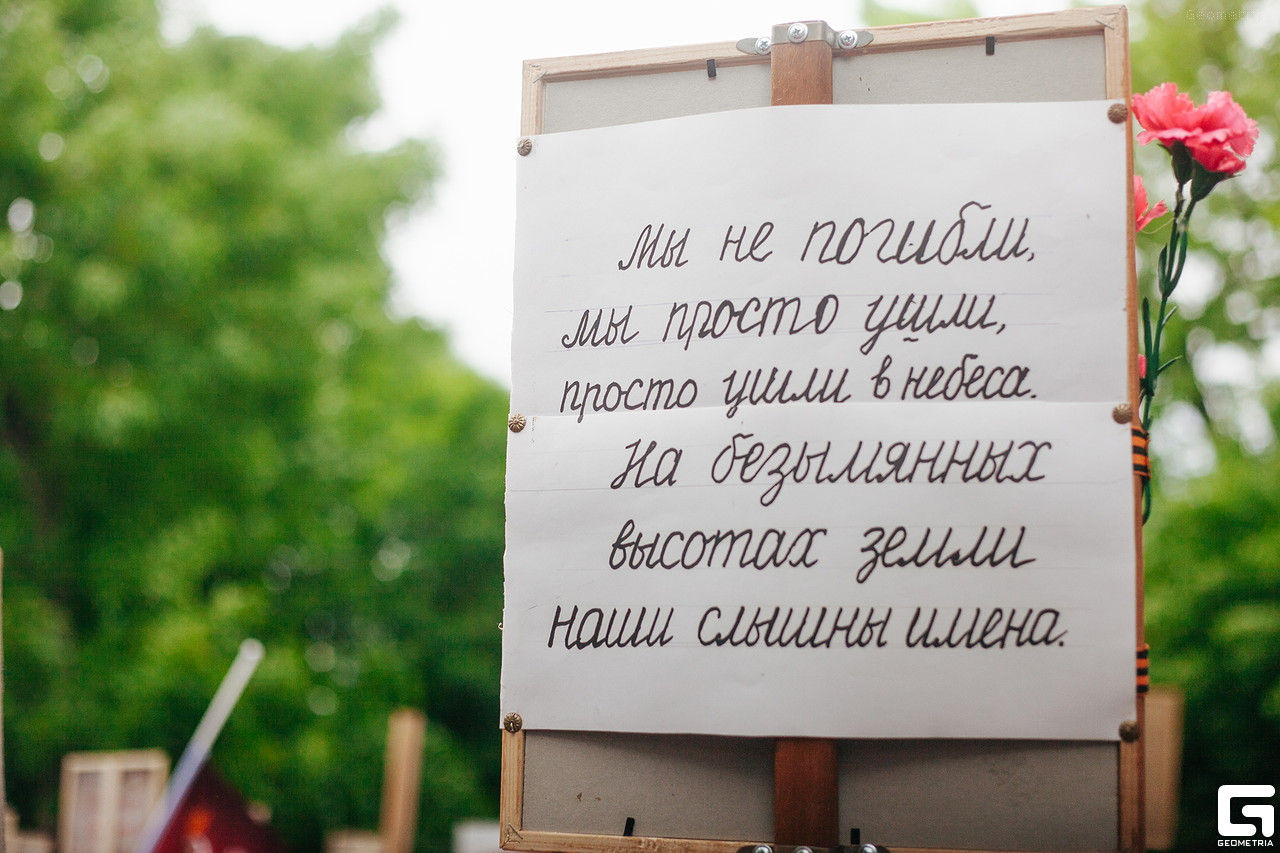 Мы не погибли,
мы просто ушли,
просто ушли в небеса.
На безымянных
высотах земли
наши слышны имена.
GEOMETRIA